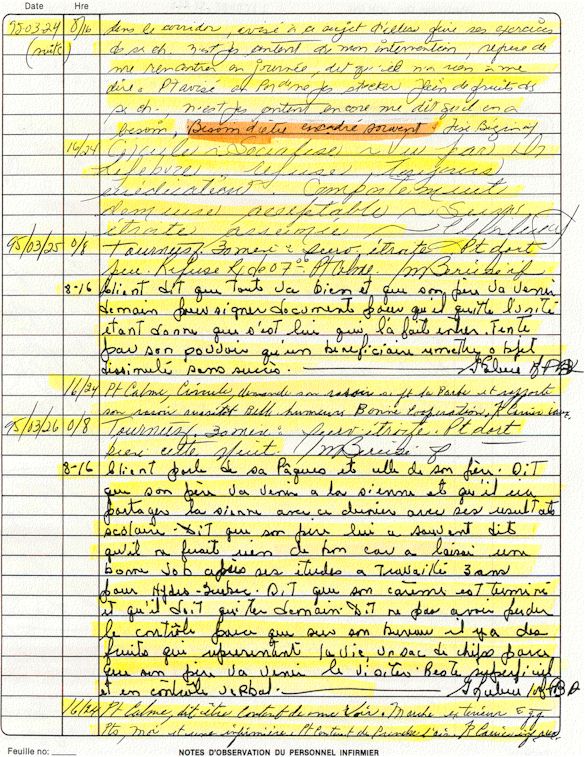 Date Hre
95-03-24 8/16 dans le corridor, avisé à ce sujet d'aller faire ses exercices
(suite) de sa ch. n'est pas content de mon intervention, refuse de
me rencontrer en journée, dit qu'il n'a rien à me
dire. Pt avisé de ne pas stocker plein de fruits ds
sa ch. n'est pas content encore me dit qu'il en a
besoin, Besoin d'être encadré souvent.
16/24 Circule Socialise vu par Dr
Lefebvre refuse toujours
médication Comportement
demeure acceptable Surv
étroite assumée
95/03/25 0/8 Tournées. surv. étroite. Pt dort
peu. Refuse de 07 Pt Calme.
8-16 Client dit que tout va bien et que son père va venir
demain pour signer documents pour qu'il quitte l'unité
étant donné que c'est lui qui l'a fait entrer. Tente
par son pouvoir qu'un bénéficiaire remette objet
dissimulé sans succès.
16/24 Pt Calme, Circule, demande son rasoir se fit la barbe et rapporte
son rasoir aussitôt Belle humeur Bonne Coopération,
95/03/26 0/8 Tournées. surv étroite. Pt dort
bien cette nuit.
8-16 Client parle de sa Pâques et celle de son père. Dit
que son père va venir à la sienne et qu'il va
partager la sienne avec ce dernier avec ses résultats
scolaire. Dit que son père lui a souvent dit
qu'il ne ferait rien de bon car a laissé une
bonne job après ses études a travaillé 3 ans
pour Hydro-Québec. Dit que son carême est terminé
et qu'il doit quitter demain. Dit ne pas avoir perdu
le contrôle parce que sur son bureau il y a des
fruits qui représentent la vie un sac de chips parce
que son père va venir le visiter. Reste superficiel
et en contrôle verbal.
16/24 Pt Calme, dit être Content de me voir. Marche extérieur
Pts, moi et une infirmière. Pt Content de Prendre l'air.
Feuille no: NOTES D'OBSERVATION DU PERSONNEL INFIRMIER